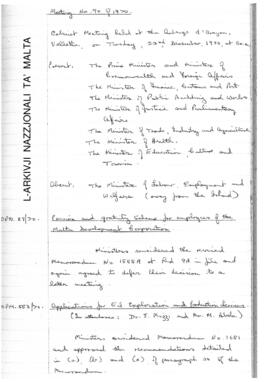 Meeting No. 95 of 1970.
Cabinet Meeting held at the Auberge d'Aragon,
Valletta, on Tuesday, 22nd December, 1970, at
Present: The Prime Minister and Minister of
Commonwealth and Foreign Affairs
The Minister of Finance, Customs and Port
The Minister of Public Building and Works
The Minister of Justice and Parliamentary
Affairs
The Minister of Trade, Industry and Agriculture
The Minister of Health
The Minister of Education, Culture and
Tourism
Absent: The Minister of Labour, Employment and
Welfare (away from the Island)
L-ARKIVJI NAZZJONALI TA' MALTA
Pension and gratuity Scheme for employees of the
Malta Development Corporation
Ministers considered the revised
Memorandum No 1555A at Red 9d in file and
again agreed to defer their decision to a
later meeting.
Applications for Oil Exploration and Production Licences
(In attendance: Dr. J. and Mr. M.
Ministers considered Memorandum No 1681
and approved the recommendations detailed
in (a) (b) and (c) of paragraph of the
Memorandum.